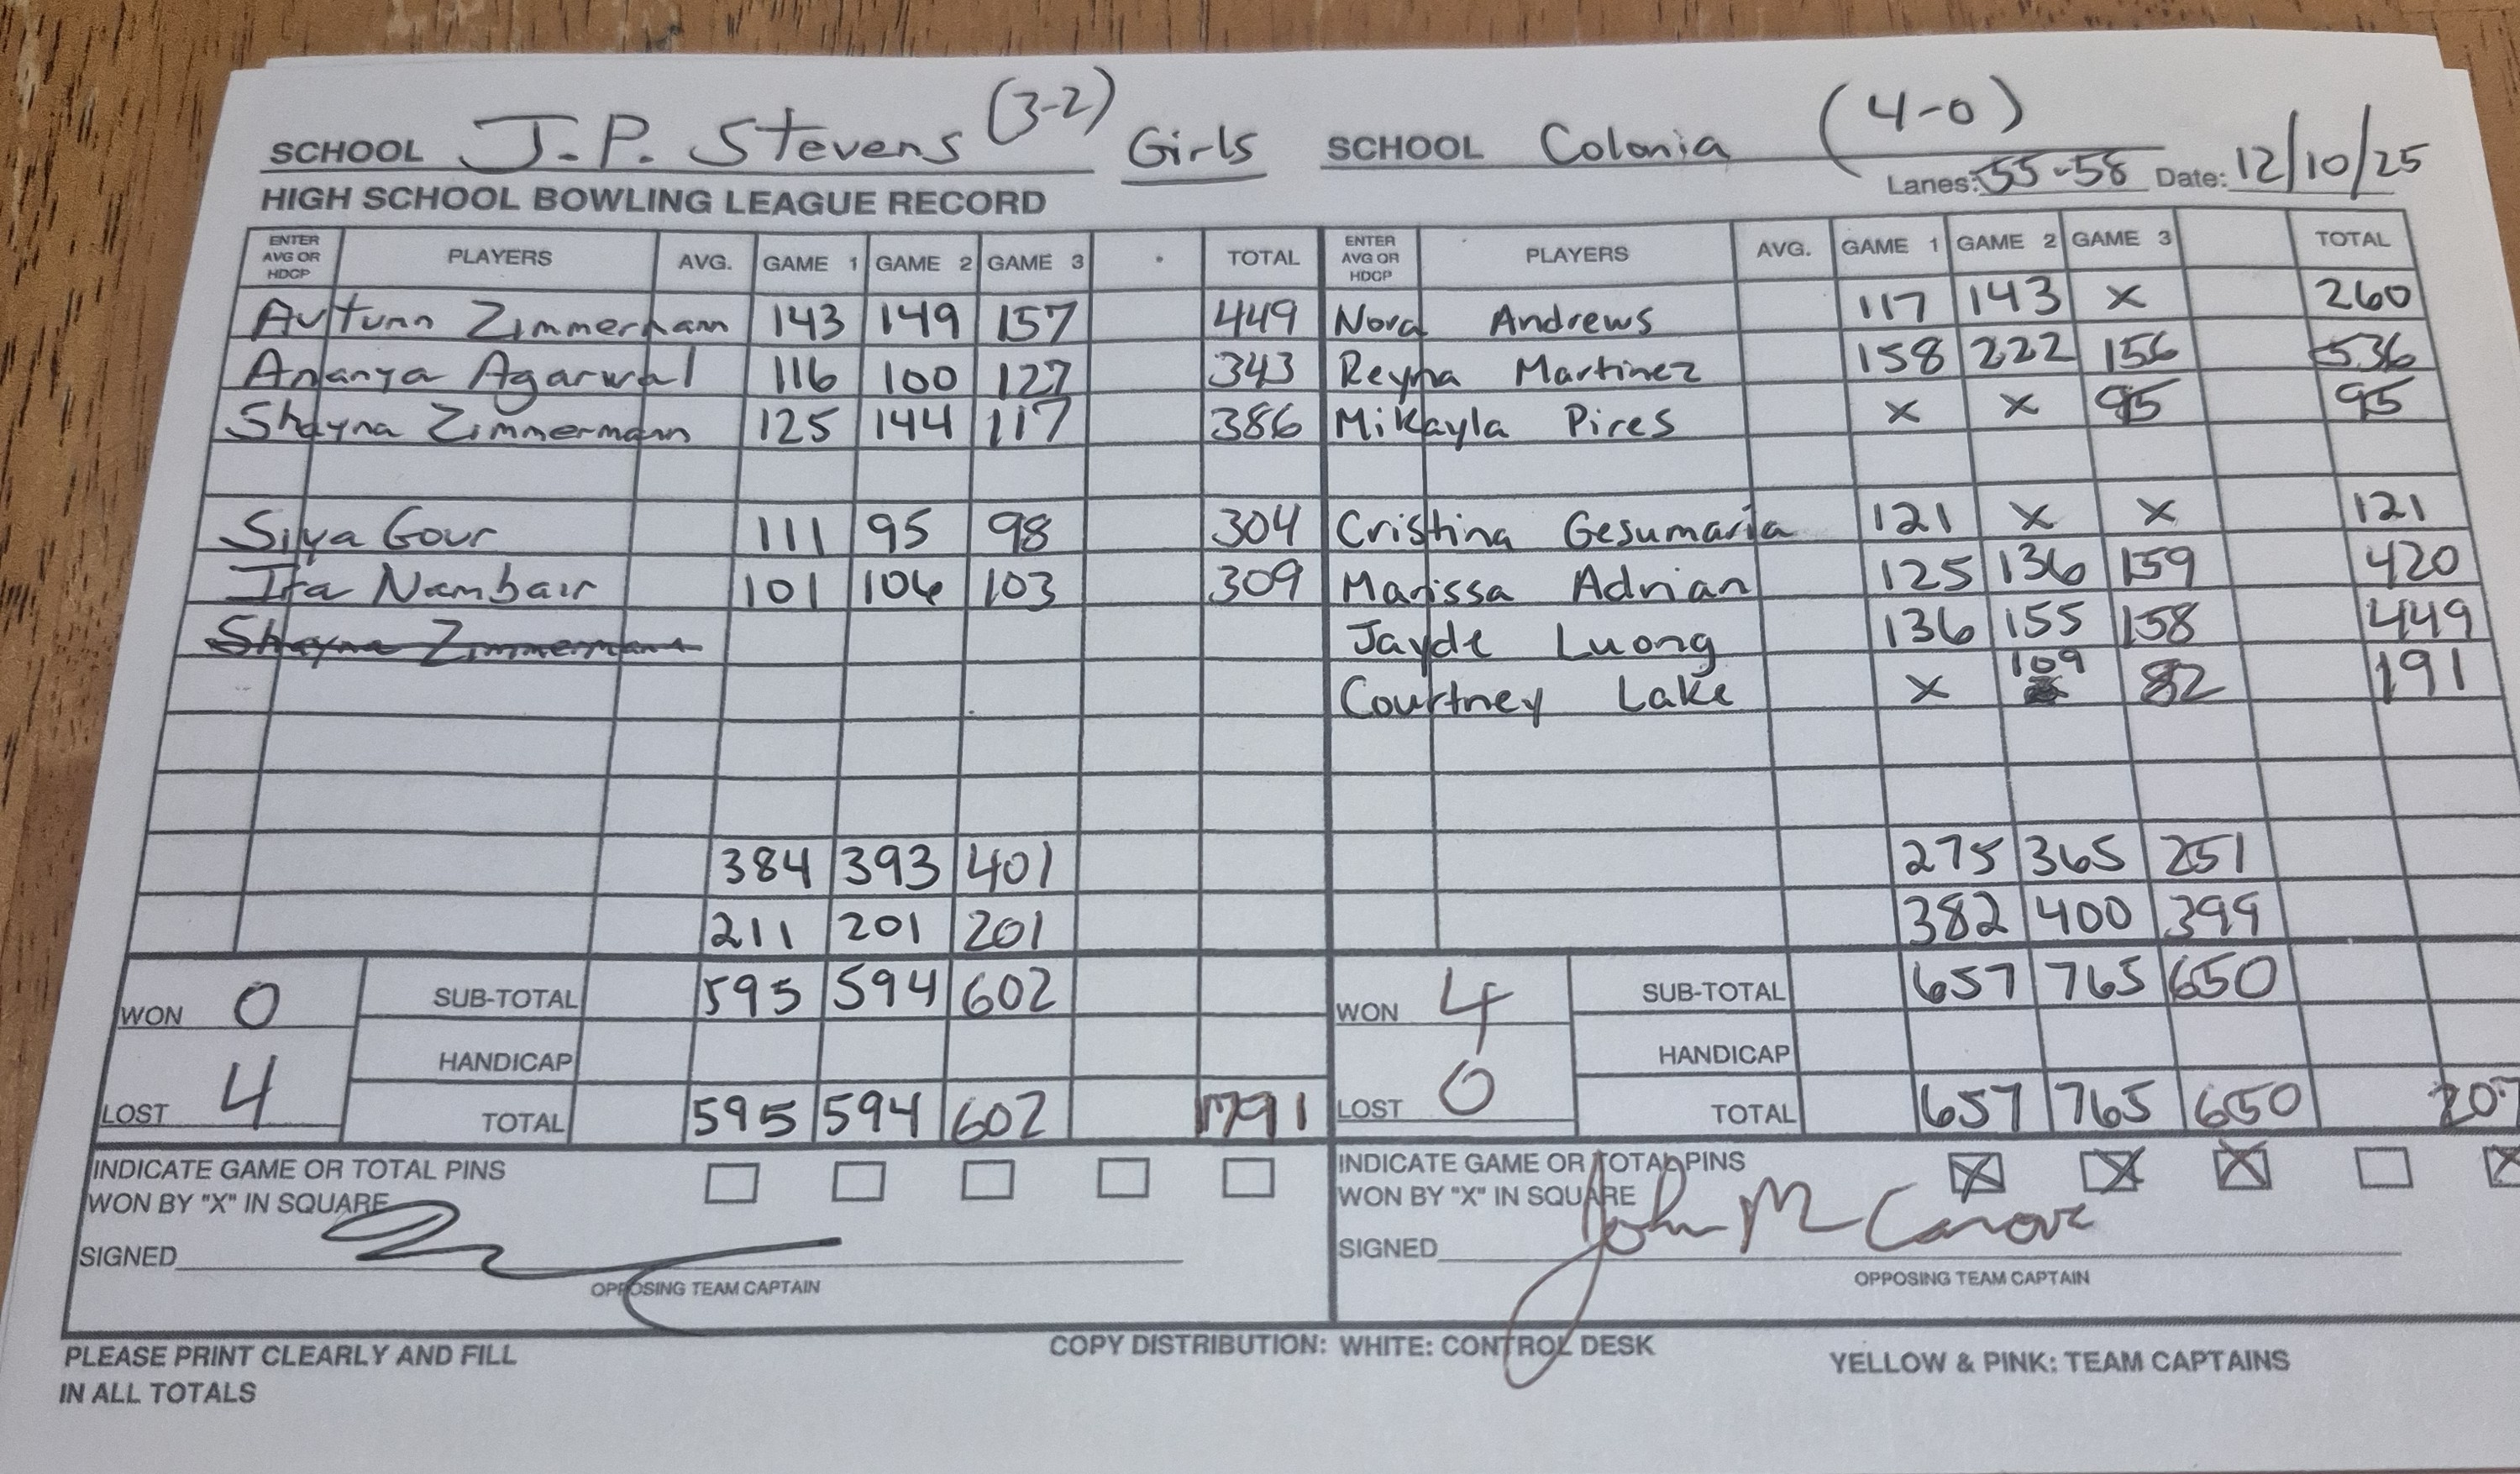 SCHOOL J.P. Stevens (3-2) Girls SCHOOL Colonia (4-0)
HIGH SCHOOL BOWLING LEAGUE RECORD Lanes: 55-58 Date: 12/10/25
ENTER AVG OR HDCP PLAYERS AVG. GAME 1 GAME 2 GAME 3 TOTAL ENTER AVG OR HDCP PLAYERS AVG. GAME 1 GAME 2 GAME 3 TOTAL
Autunn Zimmerham 143 149 157 449 Nora Andrews 117 143 x 260
Ananya Agarwal 116 100 127 343 Reyna Martinez 158 222 156 536
Shayna Zimmermann 125 144 117 386 Mikayla Pires x x 95 95
Siya Gour 111 95 98 304 Cristina Gesumaria 121 x x 121
Ira Nambair 101 106 103 309 Marissa Adrian 125 136 159 420
Shayna Zimmermann Jayde Luong 136 155 158 449
Courtney Lake x 109 82 191
384 393 401 275 365 251
211 201 201 382 400 399
WON 0 SUB-TOTAL 595 594 602 WON 4 SUB-TOTAL 657 765 650
HANDICAP HANDICAP
LOST 4 TOTAL 595 594 602 1791 LOST 0 TOTAL 657 765 650 207
INDICATE GAME OR TOTAL PINS INDICATE GAME OR TOTAL PINS
WON BY "X" IN SQUARE WON BY "X" IN SQUARE X X X X
SIGNED SIGNED John M
OPPOSING TEAM CAPTAIN OPPOSING TEAM CAPTAIN
PLEASE PRINT CLEARLY AND FILL COPY DISTRIBUTION: WHITE: CONTROL DESK YELLOW & PINK: TEAM CAPTAINS
IN ALL TOTALS